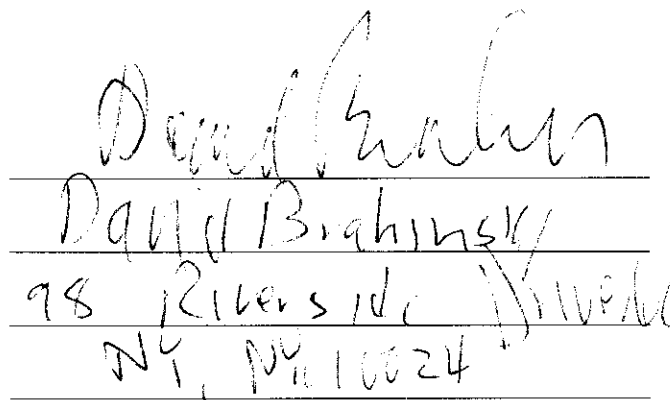 David
David Brahinsky
98 Riverside Drive
NY, NY 10024